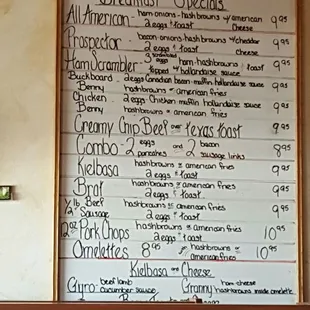 Breakfast Specials
All American - ham-onions-hashbrowns w/american cheese 9.95
2 eggs & toast
Prospector - bacon-onions-hashbrowns w/cheddar cheese 9.95
2 eggs & toast
Ham Scrambler - 3 scrambled eggs ham-hashbrowns & toast 9.95
topped w/hollandaise sauce
Buckboard - 2 eggs Canadian bacon-muffin hollandaise sauce 9.95
Benny hashbrowns or american fries
Chicken - 2 eggs-Chicken-muffin hollandaise sauce 9.95
Benny hashbrowns or american fries
Creamy Chip Beef over Texas toast 9.95
Combo - 2 eggs 2 pancakes and 2 bacon 2 sausage links 8.95
Kielbasa hashbrowns or american fries 9.95
2 eggs & toast
Brat hashbrowns or american fries 9.95
2 eggs & toast
1/2 lb Beef Sausage hashbrowns or american fries 9.95
2 eggs & toast
12oz Pork Chops hashbrowns or american fries 10.95
2 eggs & toast
Omelettes 8.95 hashbrowns or american fries 10.95
Kielbasa and Cheese
Gyro - beef lamb cucumber sauce Granny - ham-cheese hashbrowns inside omelette